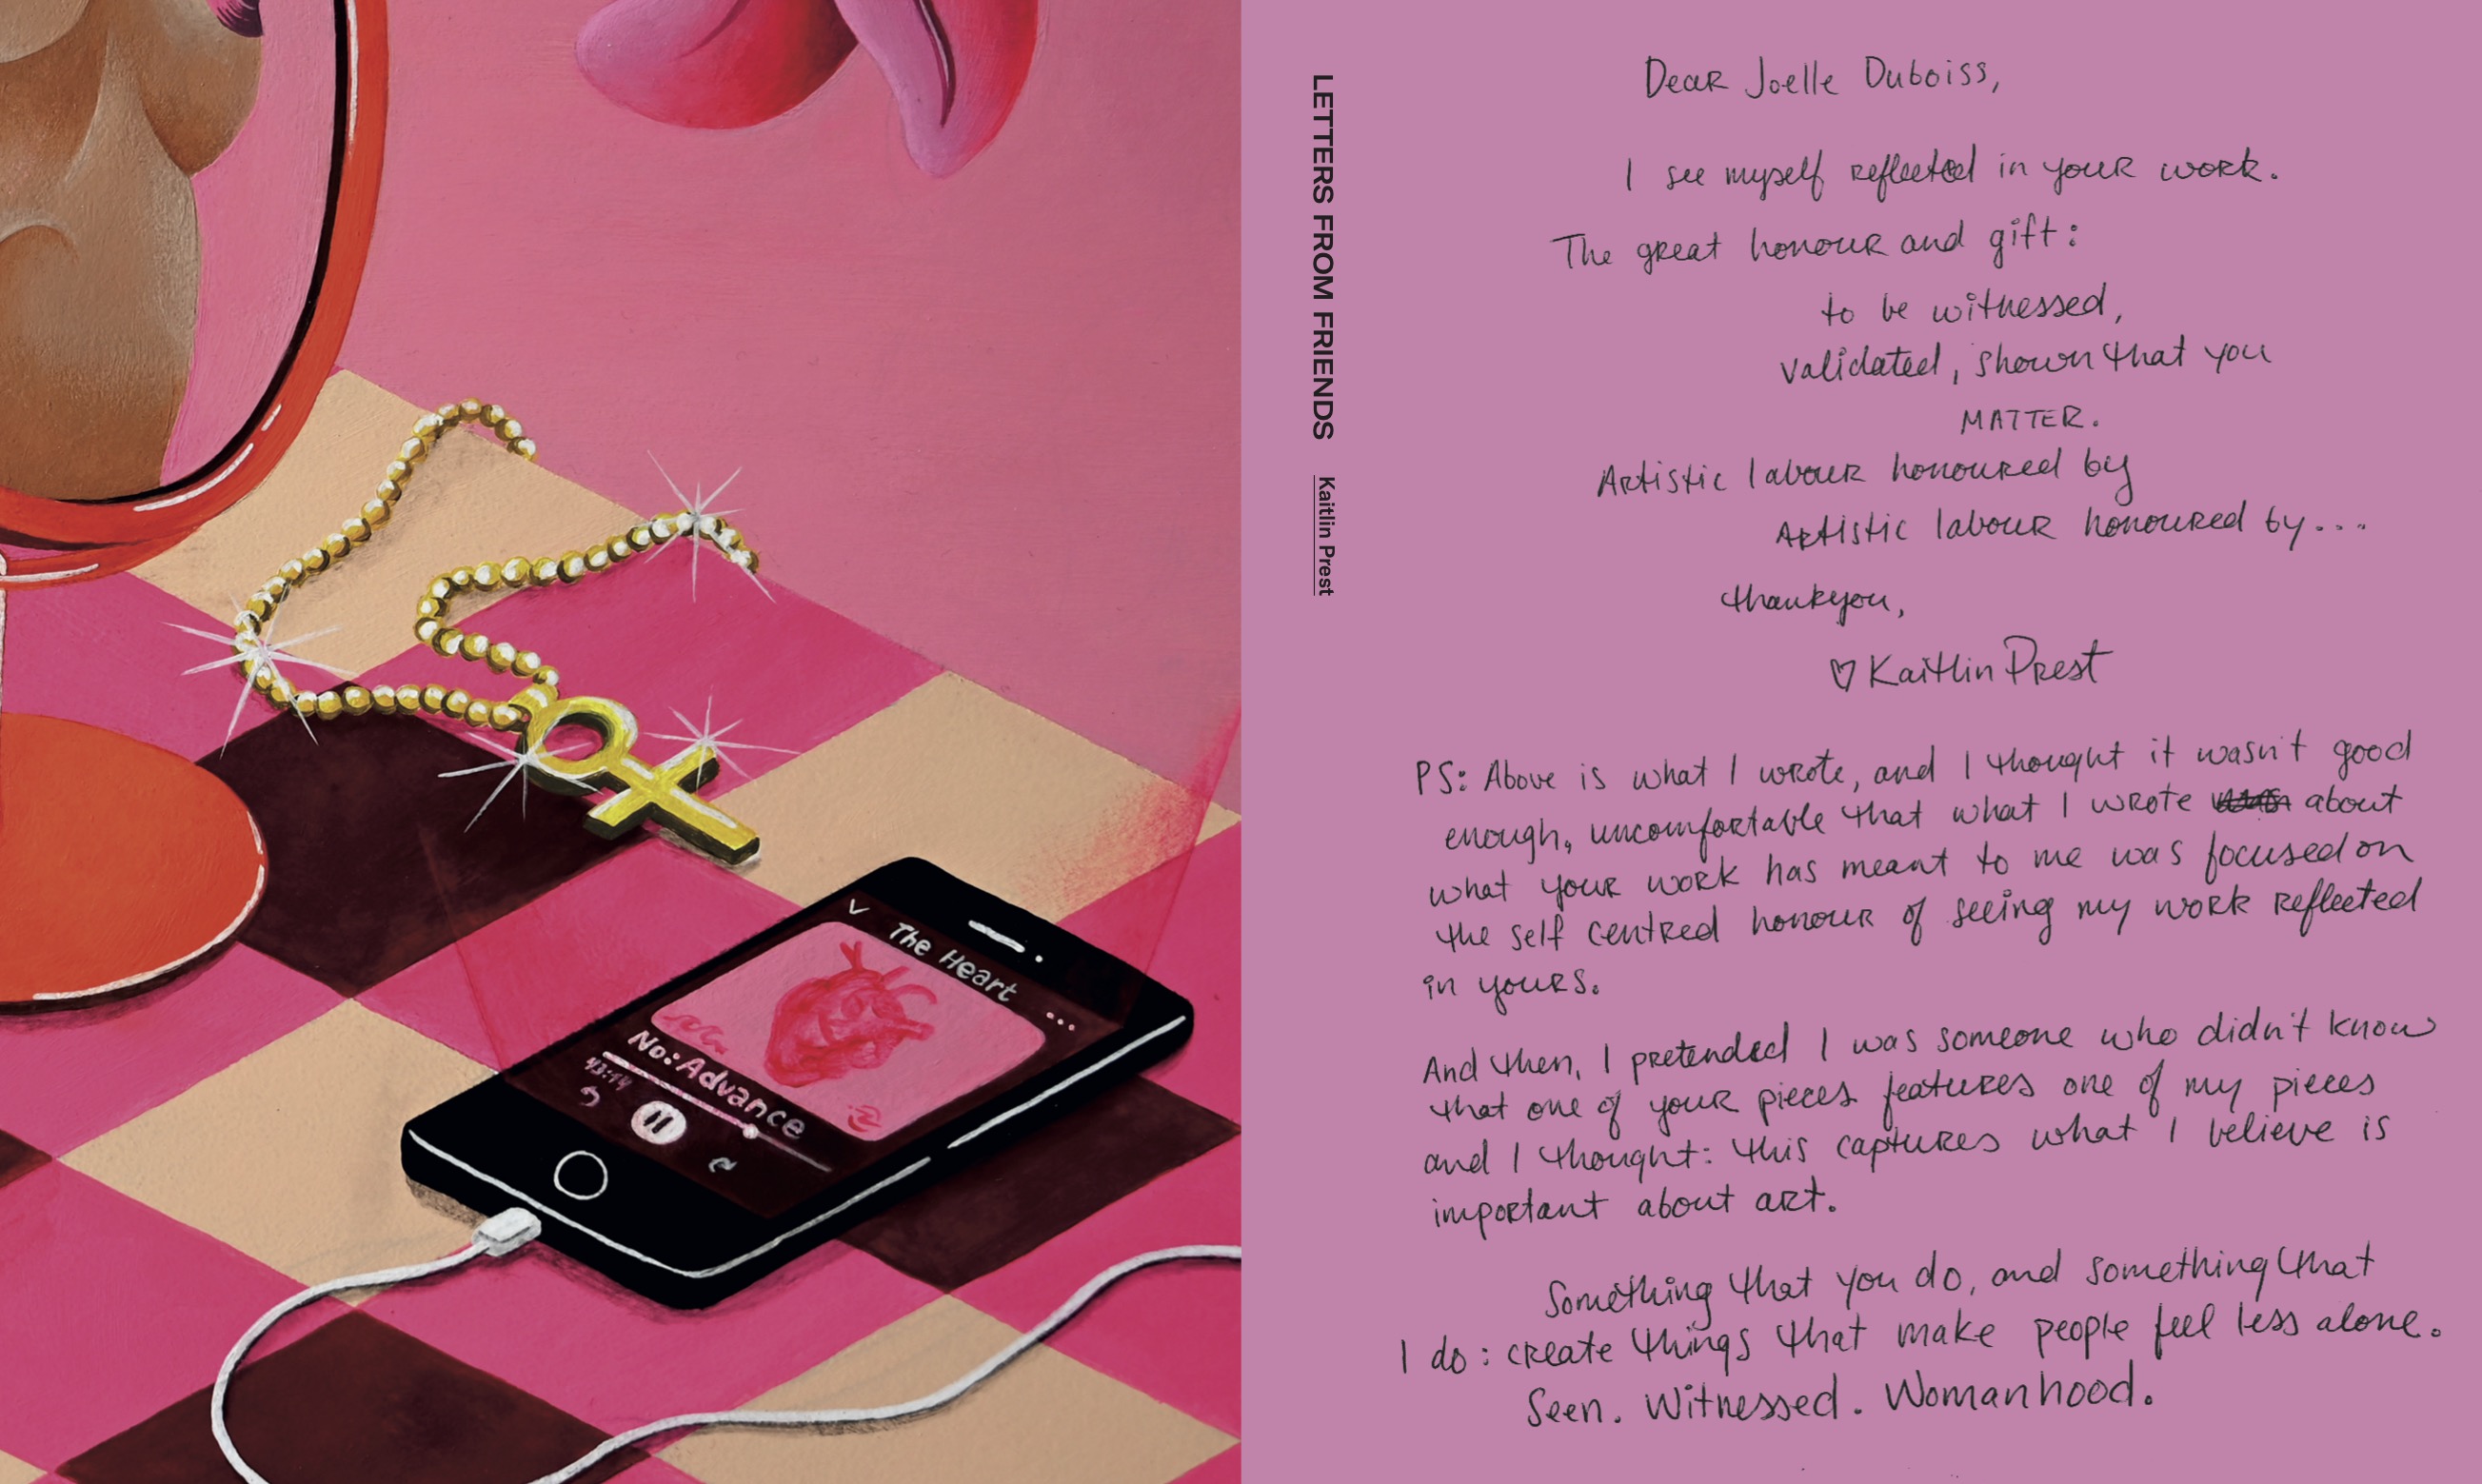 The Heart
...
No: Advance
43:14
LETTERS FROM FRIENDS Kaitlin Prest
Dear Joelle Duboiss,
I see myself reflected in your work.
The great honour and gift:
to be witnessed,
validated, shown that you
MATTER.
Artistic labour honoured by
Artistic labour honoured by...
thankyou,
♡ Kaitlin Prest
PS: Above is what I wrote, and I thought it wasn't good
enough, uncomfortable that what I wrote about
what your work has meant to me was focused on
the self centred honour of seeing my work reflected
in yours.
And then, I pretended I was someone who didn't know
that one of your pieces features one of my pieces
and I thought: this captures what I believe is
important about art.
Something that you do, and something that
I do: create things that make people feel less alone.
Seen. Witnessed. Womanhood.